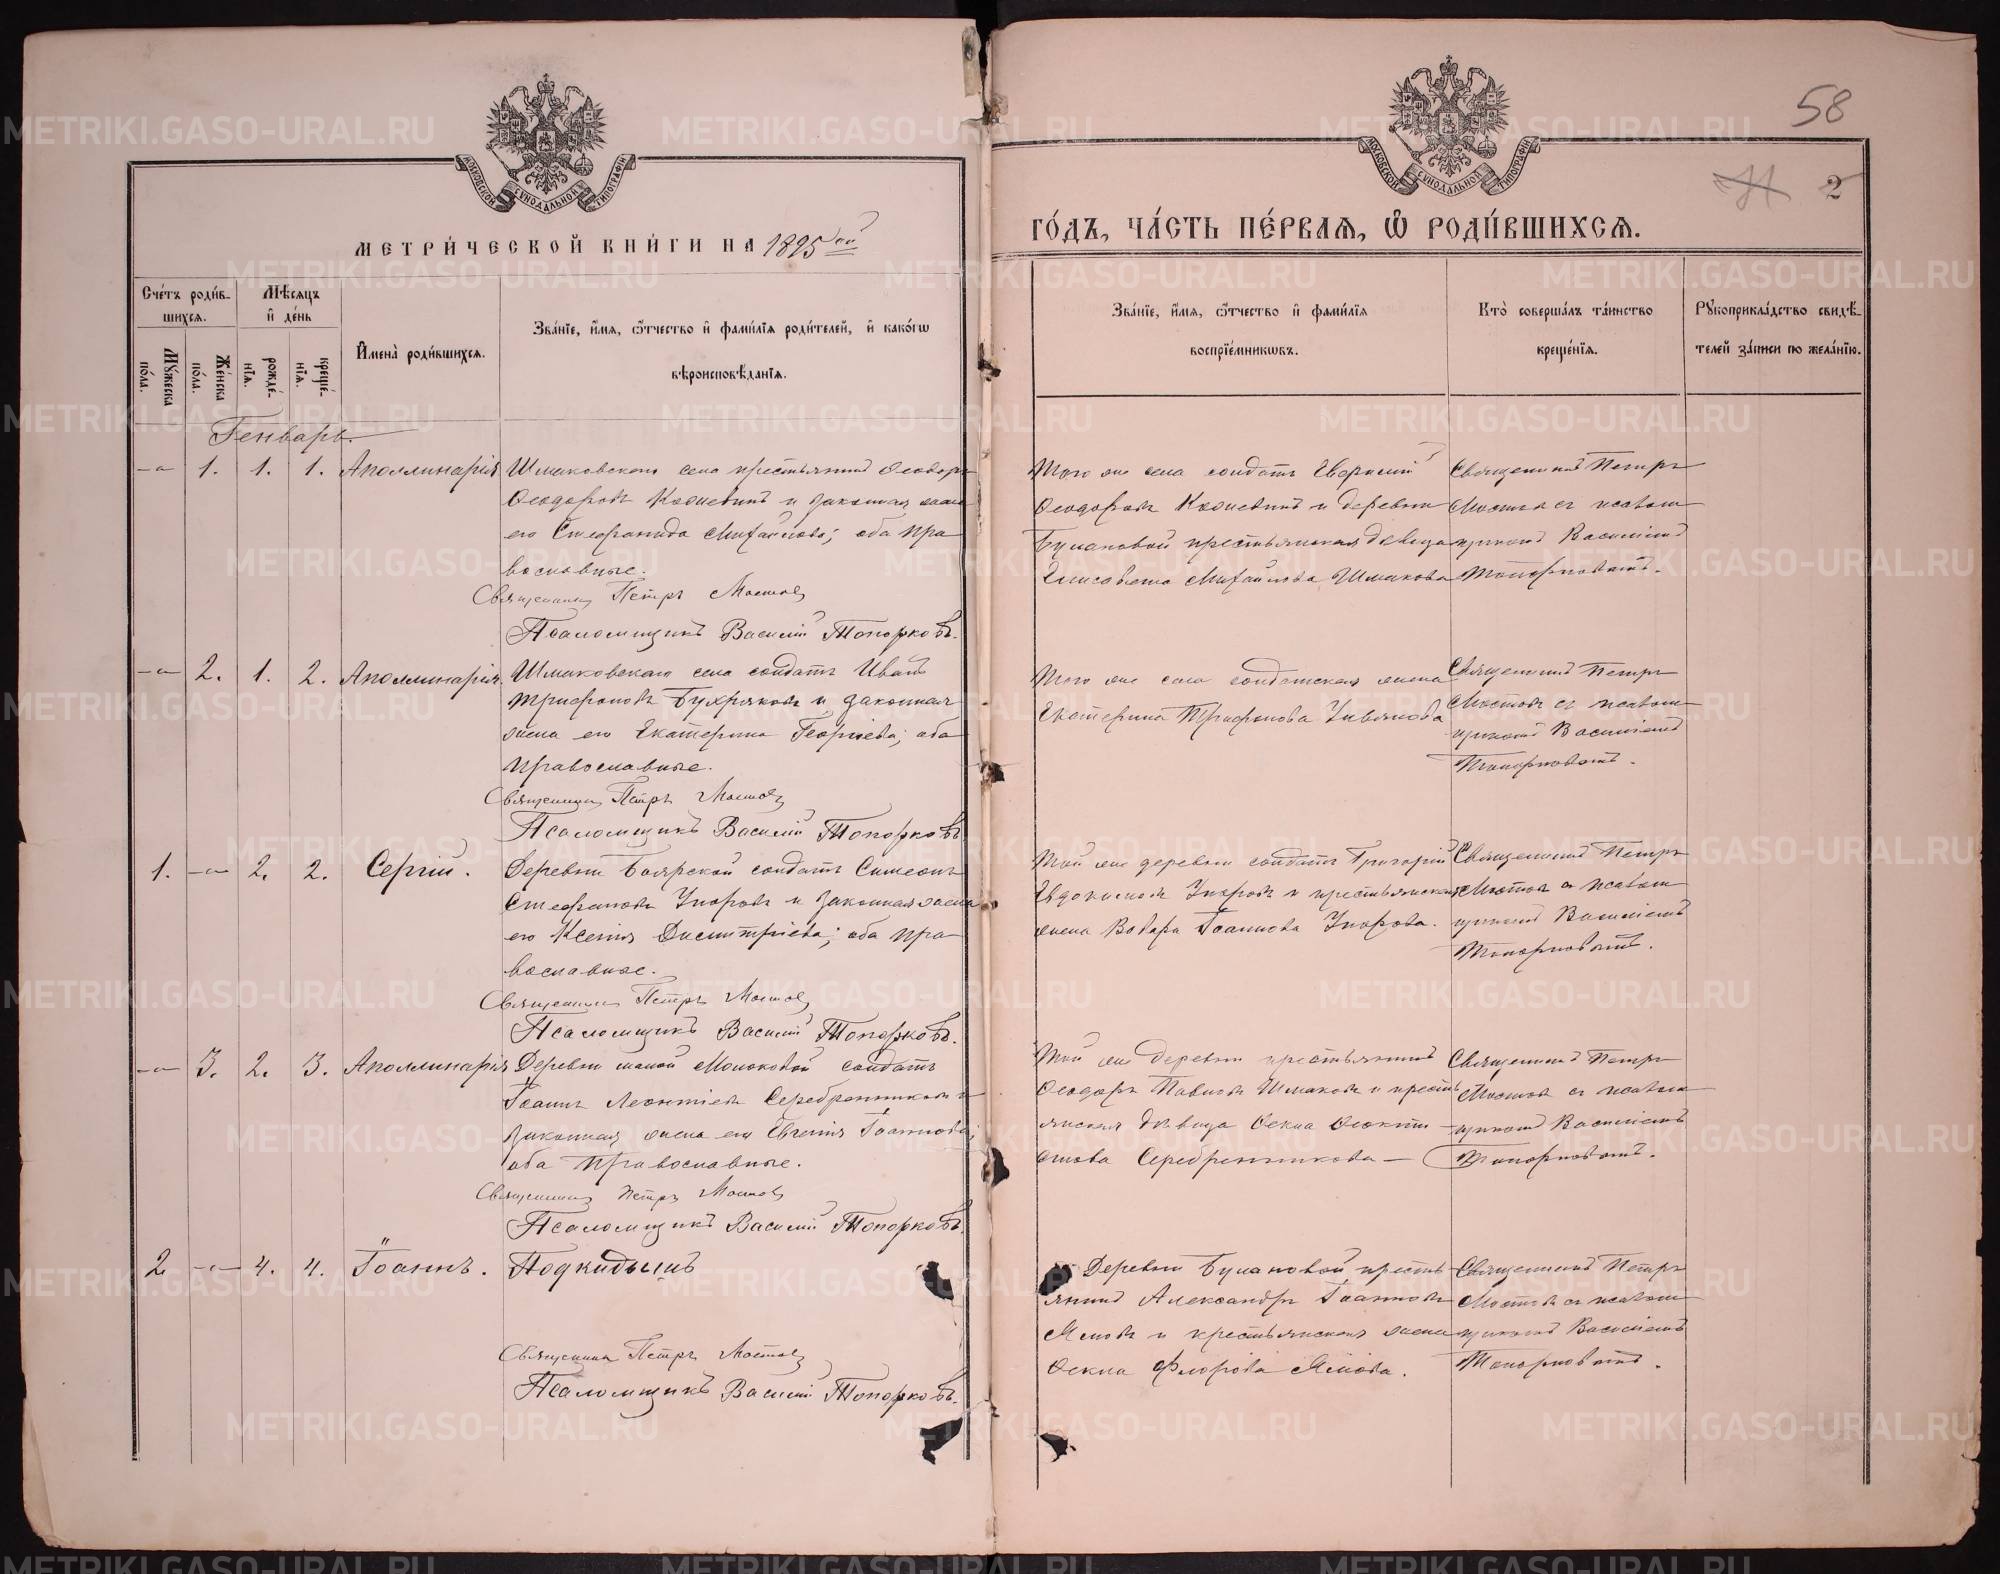 58
2
МОСКОВСКОЙ СѴНОДАЛЬНОЙ ТИПОГРАФІИ
МОСКОВСКОЙ СѴНОДАЛЬНОЙ ТИПОГРАФІИ
МЕТРИ́ЧЕСКОЙ КНИ́ГИ НА 1895 ый
ГО́ДЪ, ЧА́СТЬ ПЕ́РВАѦ, Ѽ РОДИ́ВШИХСѦ.
Сче́тъ роди́в-
шихсѧ.
Мꙋ́жеска по́ла.
Же́нска по́ла.
Мѣ́сѧцъ
и҆ де́нь
рожде́-
нїѧ.
креще́-
нїѧ.
И҆мена̀ роди́вшихсѧ.
Зва́нїе, и҆́мѧ, ѻ҆́тчество и҆ фами́лїѧ роди́телей, и҆ како́гѡ
вѣроисповѣ́данїѧ.
Зва́нїе, и҆́мѧ, ѻ҆́тчество и҆ фами́лїѧ
воспрїе́мникѡвъ.
Кто̀ соверша́лъ та́инство
креще́нїѧ.
Рꙋкоприкла́дство свидѣ́-
телей за́писи по жела́нїю.
Генварь.
— 1. 1. 1. Аполлинарія
Шмаковскаго села крестьянинъ Ѳеодоръ
Ѳеодоровъ и законная жена
его Стефанида Михайлова; оба пра
вославные.
Священникъ Петръ Мостов
Псаломщикъ Василій Топорковъ.
Того же села солдатъ
Ѳеодоровъ и деревни
Булановой крестьянская дѣвица
Елисавета Михайлова Шмакова
Священникъ Петръ
Мостовъ съ псалом
щикомъ Василіемъ
Топорковымъ.
— 2. 1. 2. Аполлинарія.
Шмаковскаго села солдатъ Иванъ
Трифоновъ Бухряковъ и законная
жена его Екатерина Георгіева; оба
православные.
Священникъ Петръ Мостов
Псаломщикъ Василій Топорковъ
Того же села солдатская жена
Екатерина Трифонова
Священникъ Петръ
Мостовъ съ псалом
щикомъ Василіемъ
Топорковымъ.
1. — 2. 2. Сергій.
Деревни Боярской солдатъ Симеонъ
Стефановъ Упоровъ и законная жена
его Ксенія Димитріева; оба пра
вославные.
Священникъ Петръ Мостов
Псаломщикъ Василій Топорковъ.
Той же деревни солдатъ Григорій
Евдокимовъ Упоровъ и крестьянская
жена Вар Іоаннова Упорова.
Священникъ Петръ
Мостовъ съ псалом
щикомъ Василіемъ
Топорковымъ.
— 3. 2. 3. Аполлинарія
Деревни малой солдатъ
Іоаннъ Леонтіевъ Серебренниковъ и
законная жена его Евгенія Іоаннова;
оба православные.
Священникъ Петръ Мостов
Псаломщикъ Василій Топорковъ.
Той же деревни крестьянинъ
Ѳеодоръ Павловъ Шмаковъ и кресть
янская дѣвица Ѳекла
Серебренникова —
Священникъ Петръ
Мостовъ съ псалом
щикомъ Василіемъ
Топорковымъ.
2 — 4. 4. Іоаннъ.
Подкидышъ
Священникъ Петръ Мостов
Псаломщикъ Василій Топорковъ.
Деревни Булановой кресть
янинъ Александръ Іоанновъ
и крестьянская жена
Ѳекла Флорова
Священникъ Петръ
Мостовъ съ псалом
щикомъ Василіемъ
Топорковымъ.
METRIKI.GASO-URAL.RU